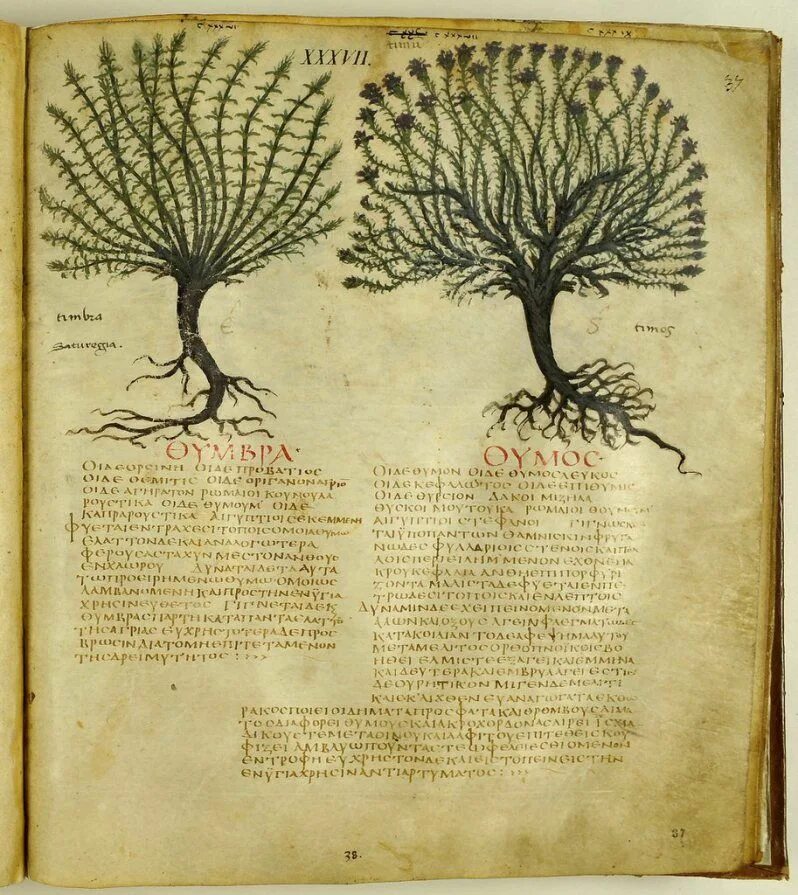 XXXVII.
timbra
Satureggia.
timos
ΘΥΜΒΡΑ·
ΟΙΔΕΟΡCΙΝΗ ΟΙΔΕΠΡΟΒΑΤΙΟC
ΟΙΔΕ ΘΕΜΙΤΙC ΟΙΔΕ ΟΡΙΓΑΝΟΝ
ΟΙΔΕ ΑΓΗΓΑΤΟΝ ΡΩΜΑΙΟΙ ΚΟΥΝΟΥΛΑ
ΡΟΥCΤΙΚΑ ΟΙΔΕ ΘΥΜΟΥΜ ΟΙΔΕ
ΚΑΠΡΑΡΟΥCΤΙΚΑ ΑΙΓΥΠΤΙΟΙ CΕΚΕΜΜΕΝΗ
ΦΥΕΤΑΙΕΝΤΡΑΧΕCΙΤΟΠΟΙCΟΜΟΙΑΘΥΜΩ
ΕΛΑΤΤΟΝΔΕΚΑΙΑΠΑΛΩΤΕΡΑ
ΦΕΡΟΥCΑCΤΑΧΥΝΜΕCΤΟΝΑΝΘΟΥC
ΕΝΧΛΩΡΟΥ ΔΥΝΑΤΑΙΔΕΤΑΑΥΤΑ
ΤΩΠΡΟΕΙΡΗΜΕΝΩΘΥΜΩ ΟΜΟΙΩC
ΛΑΜΒΑΝΟΜΕΝΗΚΑΙΠΡΟCΤΗΝΕΝΥΓΙΑ
ΧΡΗCΙΝΕΥΘΕΤΟC ΓΙΓΝΕΤΑΙΔΕΚ
ΘΥΜΒΡΑCΠΑΡΤΗΚΑΤΑΠΑΝΤΑ
ΤΗCΑΓΡΙΑC ΕΥΧΡΗCΤΟΤΕΡΑΔΕΠΡΟC
ΒΡΩCΙΝΔΙΑΤΟΜΗΕΠΙΤΕΤΑΜΕΝΟΝ
ΤΗCΔΡΕΙΜΥΤΗΤΟC
ΘΥΜΟC·
ΟΙΔΕΘΥΜΟΝ ΟΙΔΕ ΘΥΜΟCΛΕΥΚΟC
ΟΙΔΕ ΚΕΦΑΛΩΤΟC ΟΙΔΕΕΠΙΘΥΜΙC
ΟΙΔΕ ΘΥΡCΙΟΝ ΔΑΚΟΙ ΜΙΖΗΛΑ
ΘΥCΚΟΙ ΜΟΥΤΟΥΚΑ ΡΩΜΑΙΟΙ ΘΟΥΜΟΥΜ
ΑΙΓΥΠΤΙΟΙ CΤΕΦΑΝΟΙ ΓΙΓΝΩCΚΕ
ΤΑΙΥΠΟΠΑΝΤΩΝ ΘΑΜΝΙCΚΙΝΦΡΥΓΑ
ΝΩΔΕC ΦΥΛΛΑΡΙΟΙCCΤΕΝΟΙCΚΑΙΠΟ
ΛΟΙCΠΕΡΙΕΙΛΗΜΜΕΝΟΝ ΕΧΟΝΕΠΑ
ΚΡΟΥΚΕΦΑΛΙΑ ΑΝΘΗΕΠΙΠΟΡΦΥΡΙ
ΖΟΝΤΑΜΑΛΙCΤΑΔΕΦΥΕΤΑΙΕΝΠΕ
ΤΡΩΔΕCΙΤΟΠΟΙC ΚΑΙΕΝΛΕΠΤΟΙC
ΔΥΝΑΜΙΝΔΕΕΧΕΙΠΕΙΝΟΜΕΝΟΝΜΕΤΑ
ΑΛΩΝΚΑΙΟΞΟΥCΑΓΕΙΝΦΛΕΓΜΑΤΩΔΕC
ΚΑΤΑΚΟΙΛΙΑΝΤΟΔΕΑΦΕΨΗΜΑΑΥΤΟΥ
ΜΕΤΑΜΕΛΙΤΟC ΟΡΘΟΠΝΟΙΚΟΙCΒΟ
ΗΘΕΙ ΕΛΜΙCΤΕΕΞΑΓΕΙΚΑΙΕΜΜΗΝΑ
ΚΑΙΔΕΥΤΕΡΑΚΑΙΕΜΒΡΥΑ
ΔΕΟΥΡΗΤΙΚΟΝ ΜΙΓΕΝΔΕΜΕΛΙΤΙ
ΚΑΙΕΚΛΙΧΘΕΝ
ΡΑΚΟCΠΟΙΕΙΟΙΔΗΜΑΤΑΠΡΟCΦΑΤΑΚΑΙΘΡΟΜΒΟΥCΑΙΜΑ
ΤΟCΔΙΑΦΟΡΕΙ ΘΥΜΟΥCΚΑΙΑΚΡΟΧΟΡΔΟΝΑCΑΙΡΕΙ ΙCΧΙΑ
ΔΙΚΟΥCΤΕΜΕΤΑΟΙΝΟΥΚΑΙΑΛΦΙΤΟΥΕΠΙΤΕΘΕΙCΚΟΥ
ΦΙΖΕΙ ΑΜΒΛΥΩΠΟΥΝΤΑCΤΕΩΦΕΛΕΙΕCΘΙΟΜΕΝΟΝ
ΕΝΤΡΟΦΗ ΕΥΧΡΗCΤΟΝΔΕΚΑΙΕΙCΤΟΠΕΙΝΕΙCΤΗΝ
ΕΝΥΓΙΑΧΡΗCΙΝΑΝΤΙΑΡΤΥΜΑΤΟC
87
38.